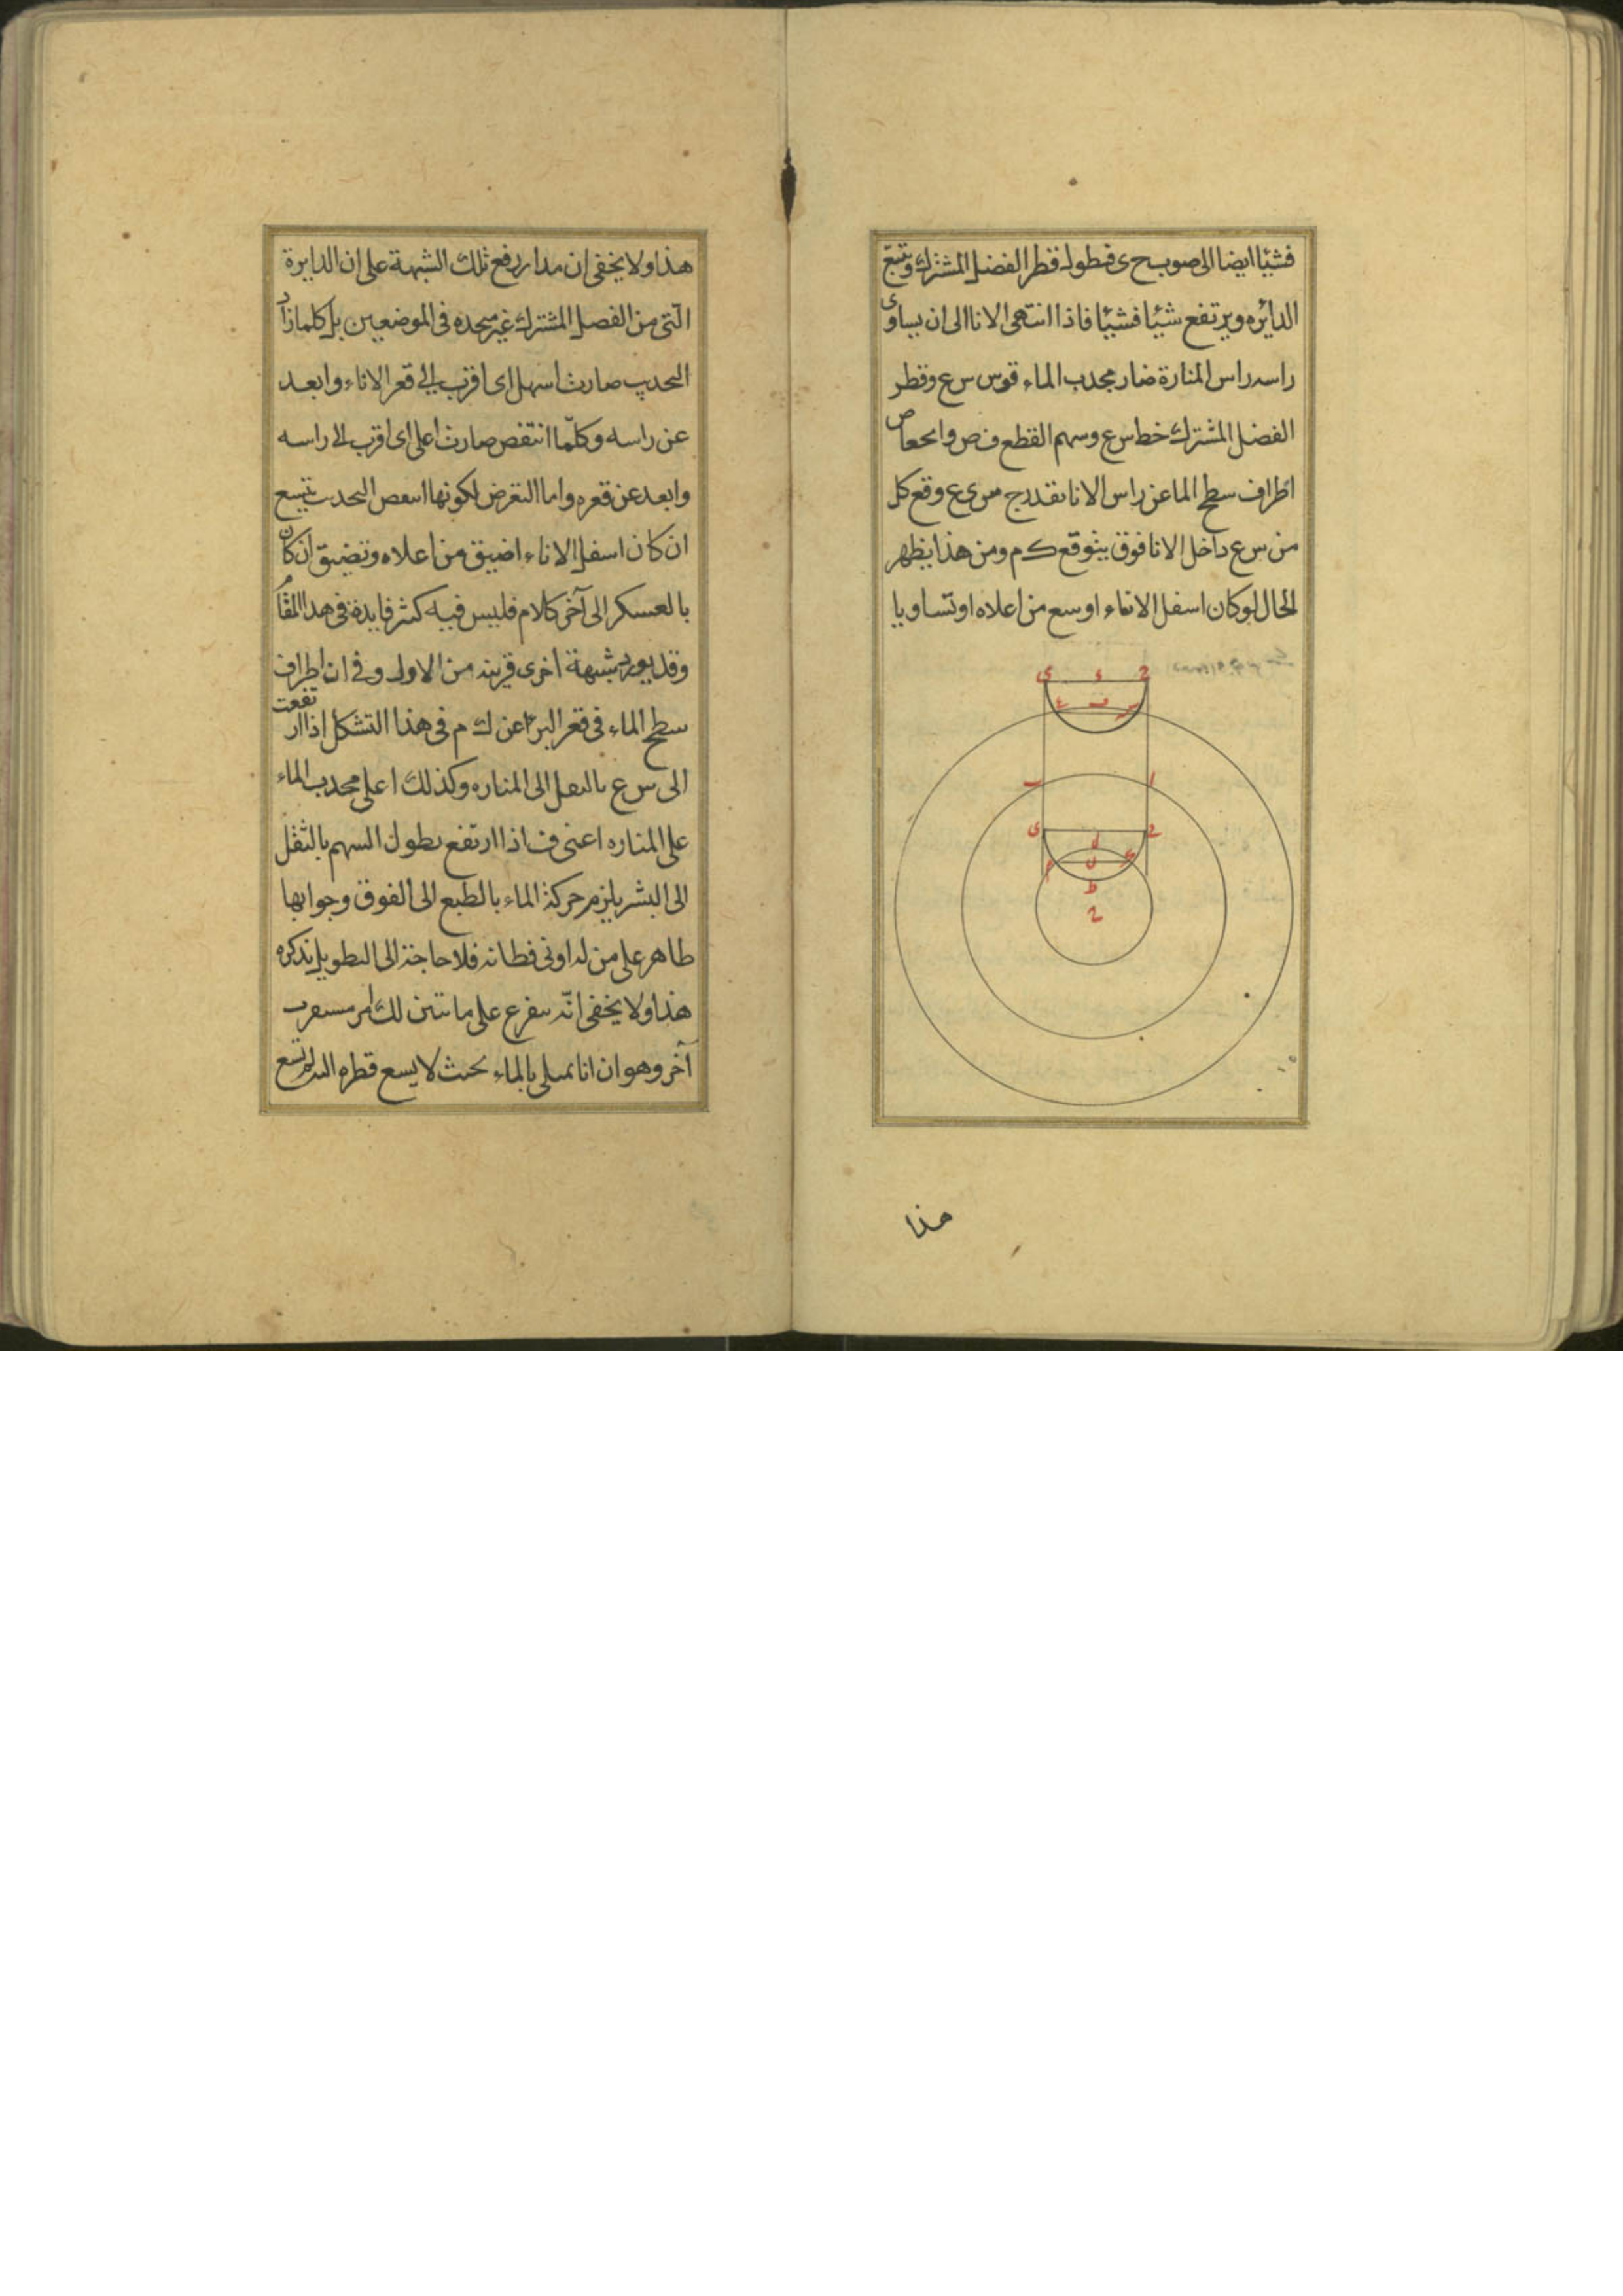 فشيئا ايضا الى صوب ح ى فطوله قطر الفضل المشترك وتتبع
الدايره ويرتفع شيئا فشيئا فاذا انتهى الانا الى ان يساوى
راسه راس المنارة صار محدب الماء قوس س ع وقطر
الفضل المشترك خط س ع وسهم القطع ف ص وانحماص
اطراف سطح الما عن راس الانا بقدر ح س ى ع وقع كل
من س ع داخل الانا فوق بثوقع ك م ومن هذا يظهر
الحال لو كان اسفل الاناء اوسع من اعلاه او تساويا
ى ء ح
ع ف س
ب ا
ى د ح
م ل ك
ط
ح
هذا
هذا ولا يخفى ان مدار رفع تلك الشبهة على ان الدايرة
التى من الفصل المشترك غير متحده فى الموضعين بل كلما زاد
التحديب صارت اسهل اى اقرب الى قعر الاناء وابعد
عن راسه وكلما انتقص صارت اعلى اى اقرب الى راسه
وابعد عن قعره واما التعرض لكونها انتقص التحدب تتسع
ان كان اسفل الاناء اضيق من اعلاه وتضيق ان كان
بالعسكر الى آخر كلام فليس فيه كثر فايدة فى هذا المقام
وقد يورد شبهة اخرى قريبة من الاول وفى ان اطراف
سطح الماء فى قعر البر اعن ك م فى هذا التشكل اذا ارتفعت
الى س ع بالنقل الى المناره وكذلك اعلى محدب الماء
على المناره اعنى ف اذا ارتفع بطول السهم بالثقل
الى البشر يلزم حركة الماء بالطبع الى الفوق وجوابها
ظاهر على من له اونى فطانه فلا حاجة الى التطويل بذكره
هذا ولا يخفى انه يتفرع على ما تبين لك امر مستغرب
آخر وهو ان انا يملى بالماء بحيث لا يسع قطره لم تسع